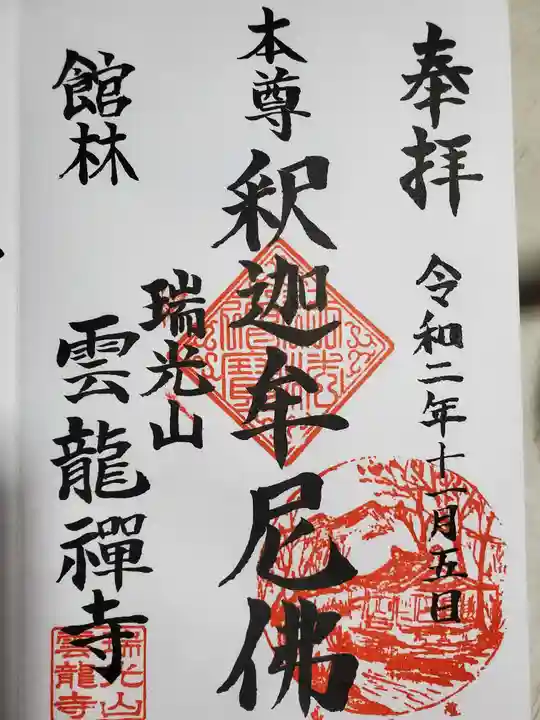 奉拝
令和二年十一月五日
本尊
釈迦牟尼佛
瑞光山
館林
雲龍禅寺
瑞光山
雲龍寺